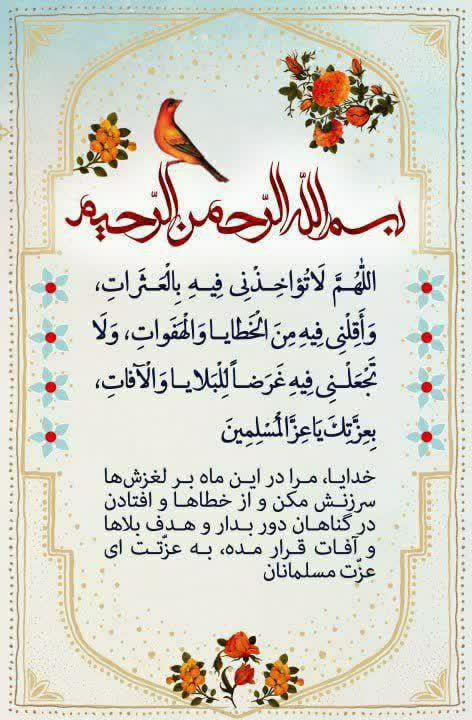 بسم الله الرّحمن الرّحیم
اللّٰهُمَّ لَاتُؤاخِذْنِی فِیهِ بِالْعَثَرَاتِ،
وَأَقِلْنِی فِیهِ مِنَ الْخَطَایَا وَالْهَفَواتِ، وَلَا
تَجْعَلْنِی فِیهِ غَرَضاً لِلْبَلایَا وَالْآفَاتِ،
بِعِزَّتِكَ یَاعِزَّالْمُسْلِمِینَ
خدایا، مرا در این ماه بر لغزش‌ها
سرزنش مکن و از خطاها و افتادن
در گناهان دور بدار و هدف بلاها
و آفات قرار مده، به عزّتت ای
عزّت مسلمانان